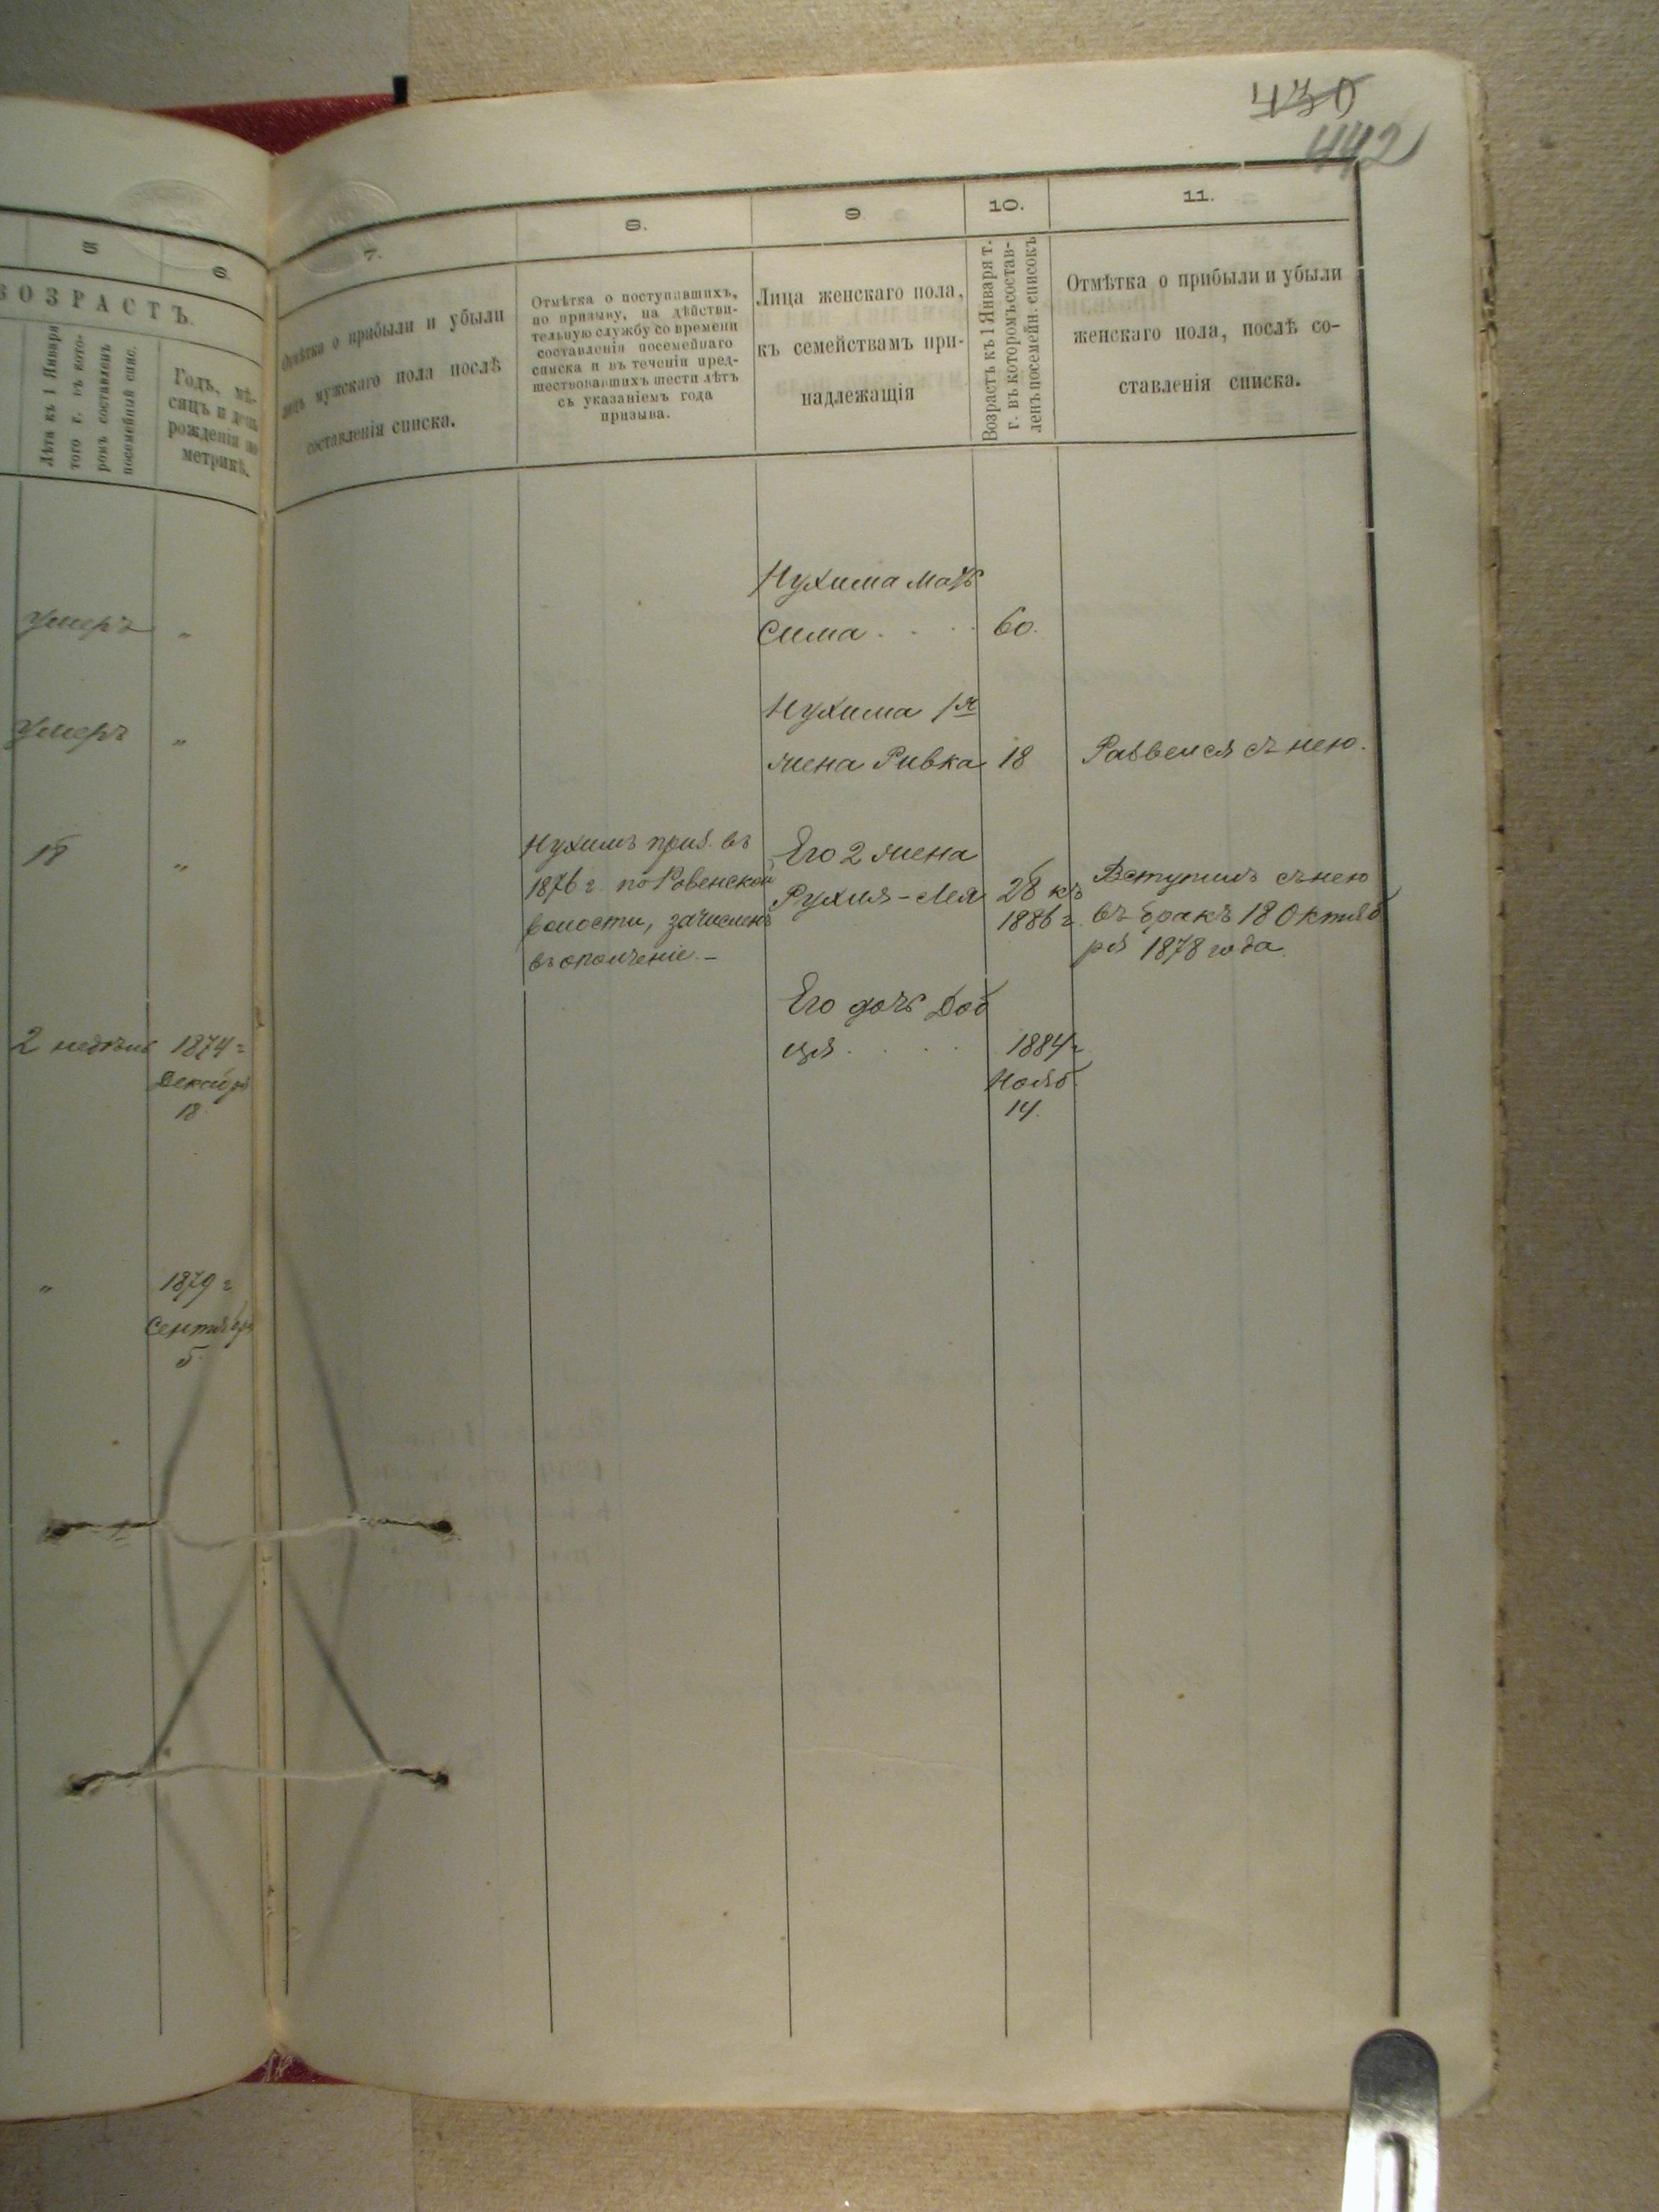 430
442
5
6
7.
8.
9
10.
11.
ВОЗРАСТЪ.
Лѣта къ 1 Января
того г. въ кото-
ромъ составленъ
посемейный спис.
Годъ, мѣ-
сяцъ и день
рожденія по
метрикѣ.
Отмѣтка о прибыли и убыли
лицъ мужскаго пола послѣ
составленія списка.
Отмѣтка о поступавшихъ,
по призыву, на дѣйстви-
тельную службу со времени
составленія посемейнаго
списка и въ теченіи пред-
шествовавшихъ шести лѣтъ
съ указаніемъ года
призыва.
Лица женскаго пола,
къ семействамъ при-
надлежащія
Возрастъ къ 1 Января т.
г. въ которомъ состав-
ленъ посемейн. списокъ
Отмѣтка о прибыли и убыли
женскаго пола, послѣ со-
ставленія списка.
Нухима мать
умеръ „
Сима . . . . 60.
Нухима 1я
умеръ „
жена Ривка 18 Развелся съ нею.
18 „
Нухимъ приз. въ
1876 г. по Ровенской
волости, зачисленъ
въ ополченіе. –
Его 2 жена
Рухля-Лея 28 къ
1886 г.
Вступилъ съ нею
въ бракъ 18 Октяб
ря 1878 года.
Его дочь Доб
ця . . . . 1884 г.
Нояб.
14.
2 недѣли 1874 г
Декабря
18.
„ 1879 г
Сентября
5.